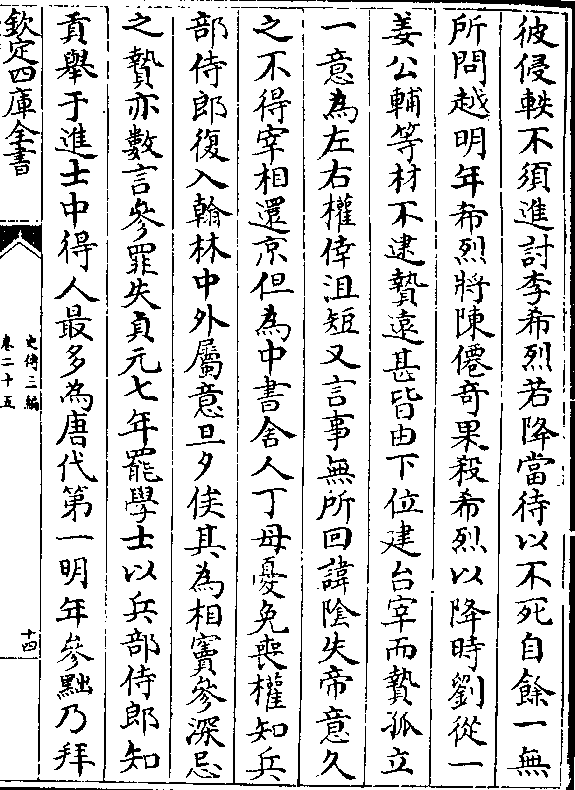 彼侵軼不須進討李希烈若降當待以不死自餘一無
所問越明年希烈將陳僊奇果殺希烈以降時劉從一
姜公輔等材不逮贄遠甚皆由下位建台宰而贄孤立
一意為左右權倖沮短又言事無所回諱陰失帝意久
之不得宰相還京但為中書舍人丁母憂免喪權知兵
部侍郎復入翰林中外屬意旦夕俟其為相竇參深忌
之贄亦數言參罪失貞元七年罷學士以兵部侍郎知
貢舉于進士中得人最多為唐代第一明年參黜乃拜
欽定四庫全書
史傳三編
卷二十五
十四